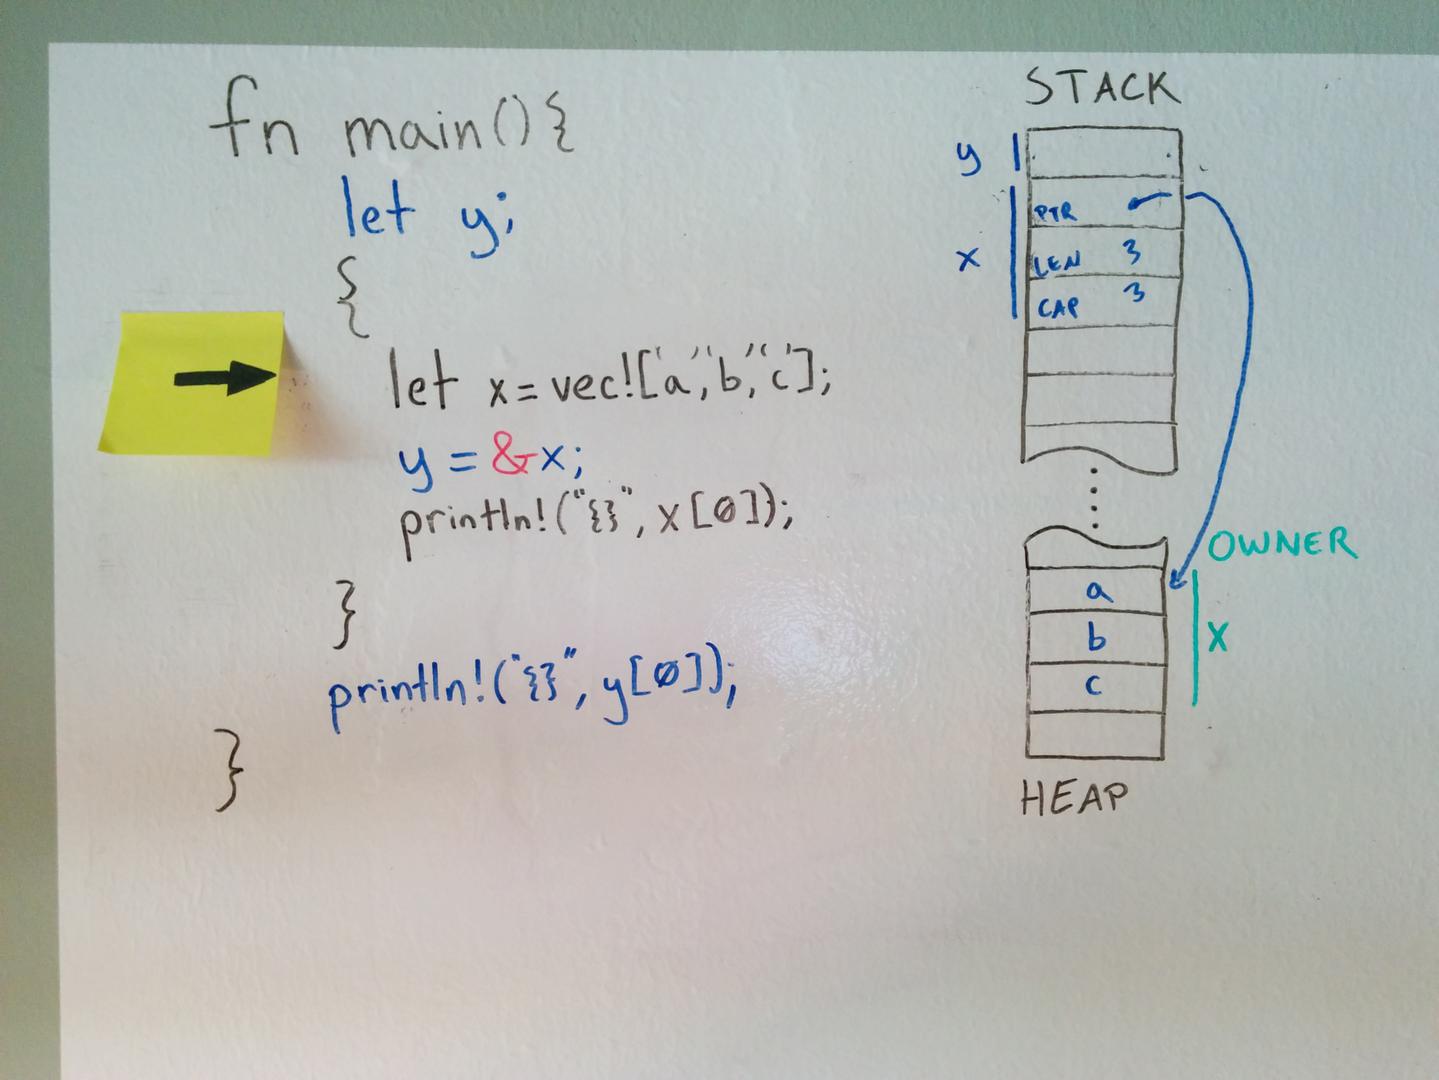 fn main(){
let y;
{
let x = vec!['a','b','c'];
y = &x;
println!("{}", x[0]);
}
println!("{}", y[0]);
}
STACK
y
x
PTR
LEN 3
CAP 3
OWNER
a
b
x
c
HEAP